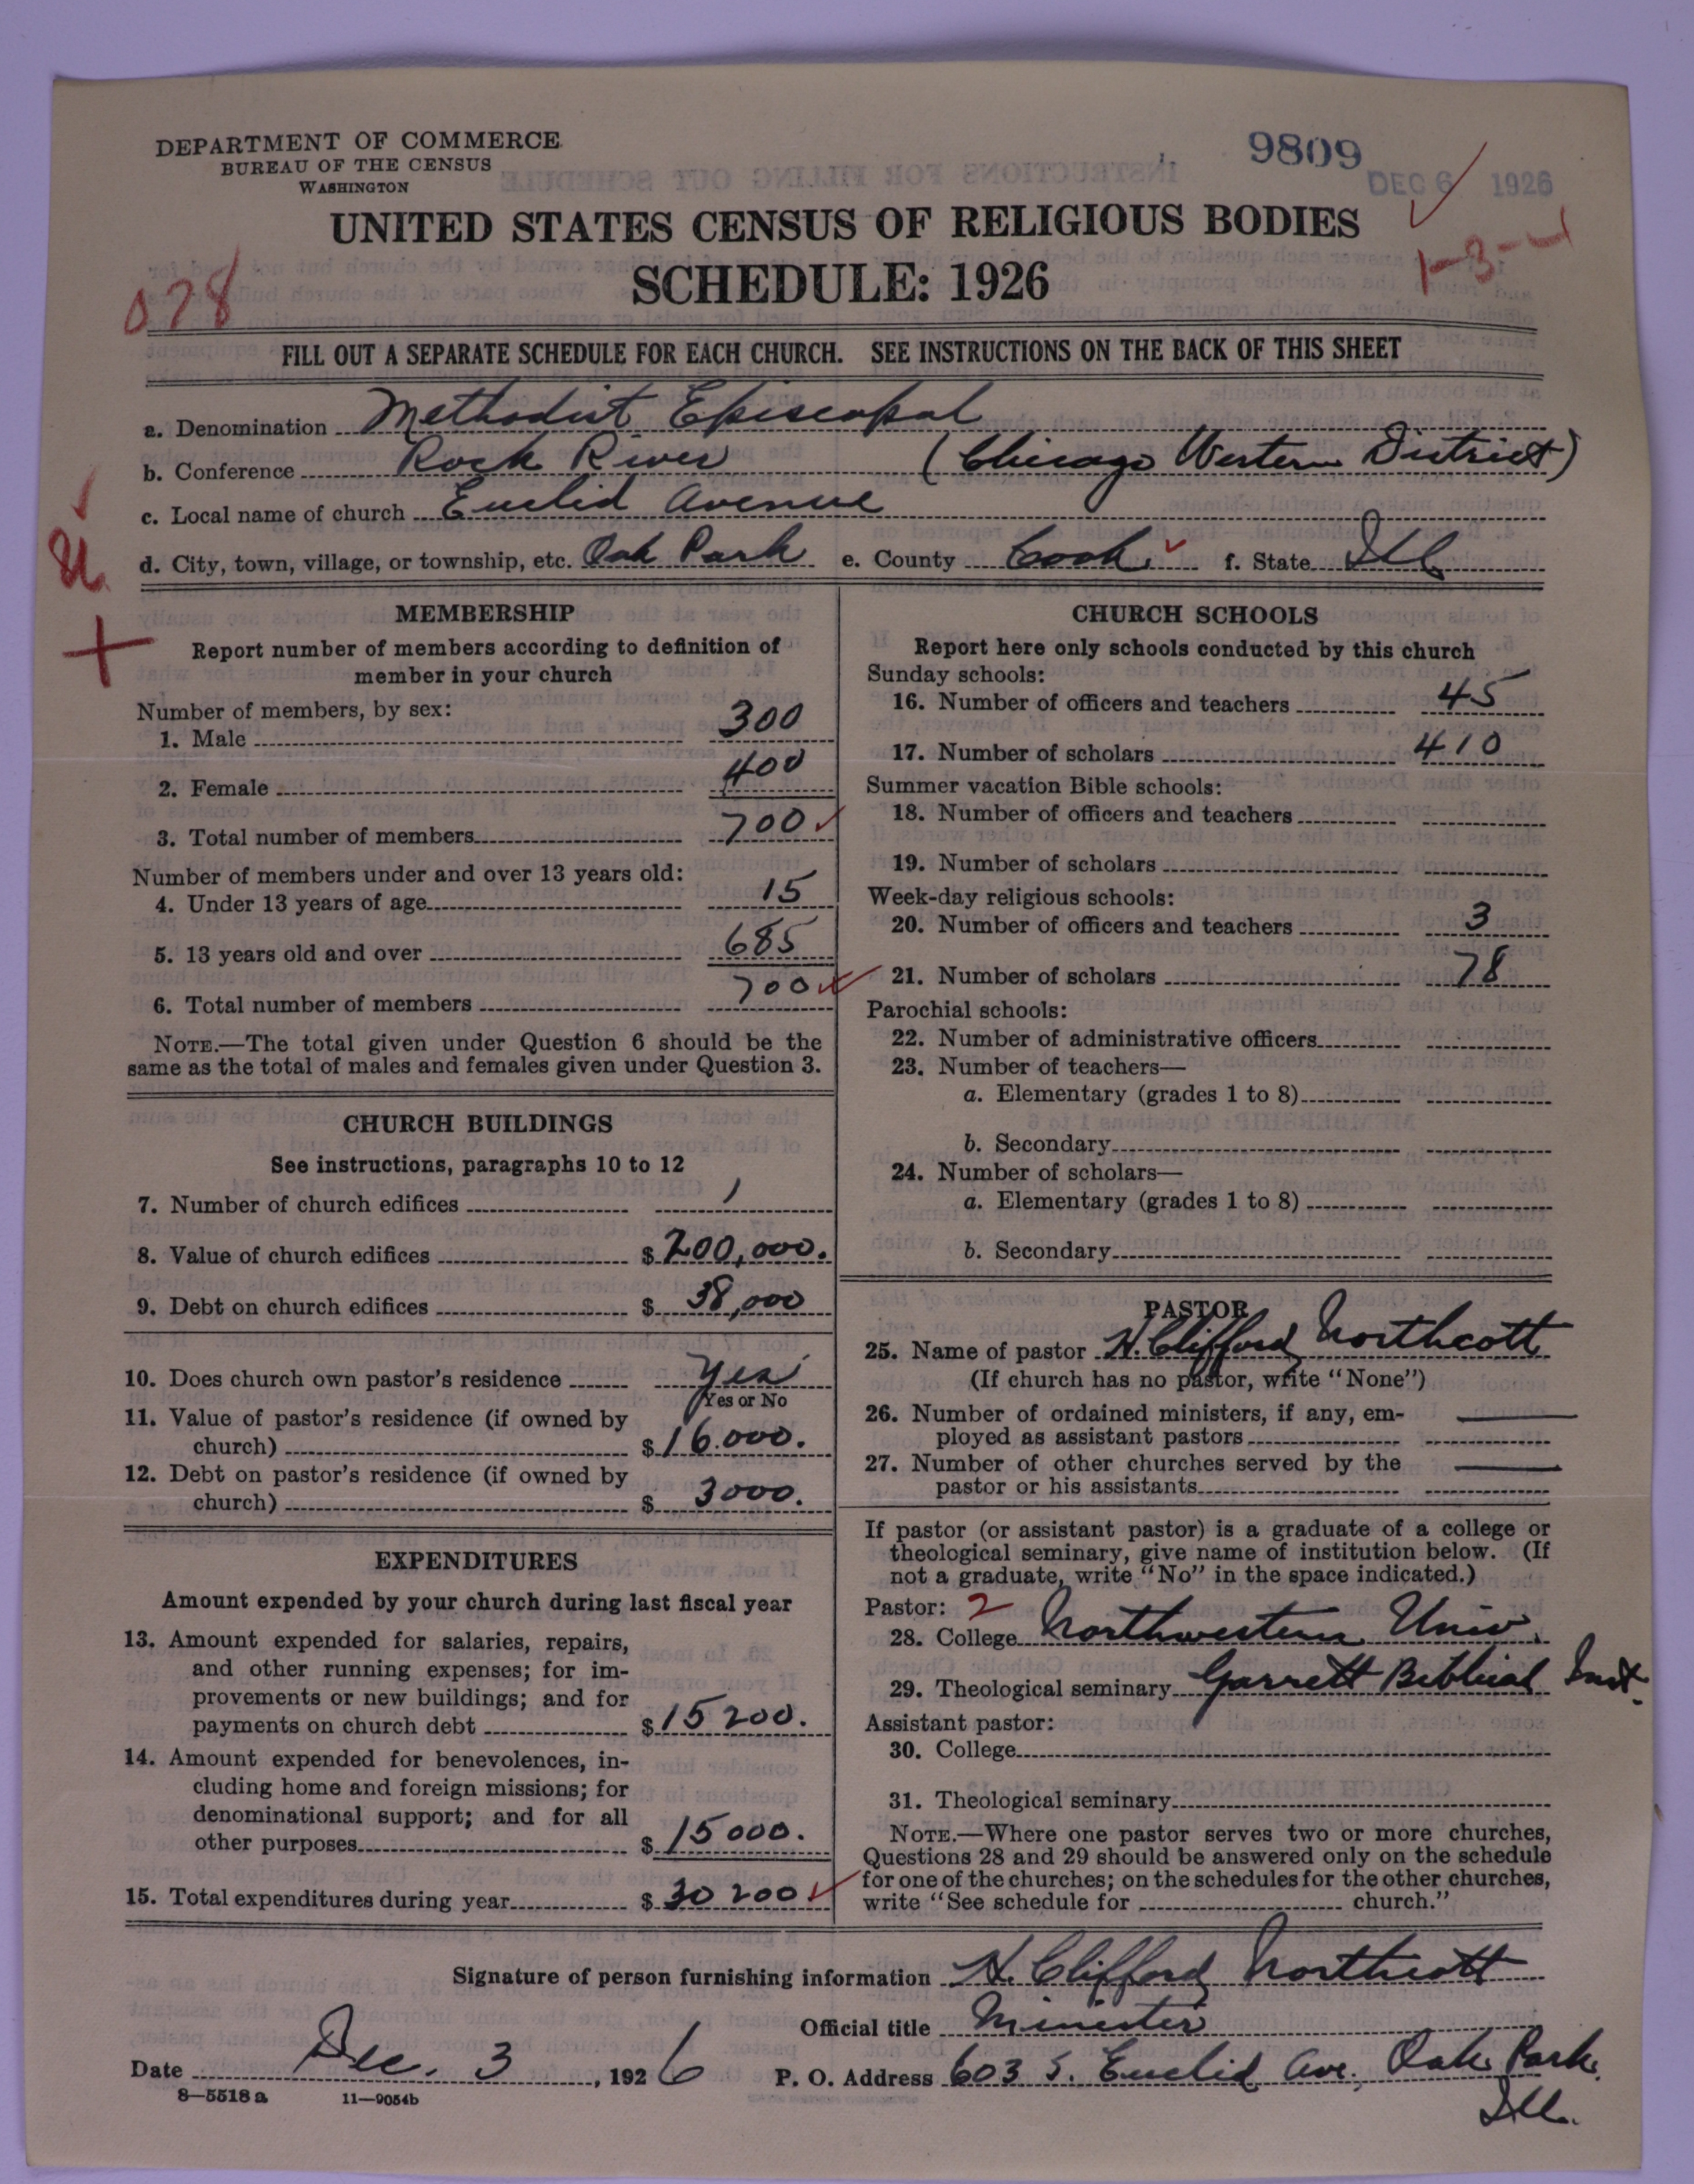 DEPARTMENT OF COMMERCE
BUREAU OF THE CENSUS
WASHINGTON
9809
DEC 6 1926
UNITED STATES CENSUS OF RELIGIOUS BODIES
SCHEDULE: 1926
078
1-3-4
FILL OUT A SEPARATE SCHEDULE FOR EACH CHURCH. SEE INSTRUCTIONS ON THE BACK OF THIS SHEET
a. Denomination Methodist Episcopal
b. Conference Rock River (Chicago Western District)
c. Local name of church Euclid Avenue
d. City, town, village, or township, etc. Oak Park e. County Cook f. State Ill
MEMBERSHIP
Report number of members according to definition of
member in your church
Number of members, by sex:
1. Male 300
2. Female 400
3. Total number of members 700
Number of members under and over 13 years old:
4. Under 13 years of age 15
5. 13 years old and over 685
6. Total number of members 700
NOTE.—The total given under Question 6 should be the
same as the total of males and females given under Question 3.
CHURCH BUILDINGS
See instructions, paragraphs 10 to 12
7. Number of church edifices 1
8. Value of church edifices $ 200,000.
9. Debt on church edifices $ 38,000
10. Does church own pastor's residence Yes
Yes or No
11. Value of pastor's residence (if owned by
church) $ 16.000.
12. Debt on pastor's residence (if owned by
church) $ 3000.
EXPENDITURES
Amount expended by your church during last fiscal year
13. Amount expended for salaries, repairs,
and other running expenses; for im-
provements or new buildings; and for
payments on church debt $ 15 200.
14. Amount expended for benevolences, in-
cluding home and foreign missions; for
denominational support; and for all
other purposes $ 15000.
15. Total expenditures during year $ 30 200
CHURCH SCHOOLS
Report here only schools conducted by this church
Sunday schools:
16. Number of officers and teachers 45
17. Number of scholars 410
Summer vacation Bible schools:
18. Number of officers and teachers
19. Number of scholars
Week-day religious schools:
20. Number of officers and teachers 3
21. Number of scholars 78
Parochial schools:
22. Number of administrative officers
23. Number of teachers—
a. Elementary (grades 1 to 8)
b. Secondary
24. Number of scholars—
a. Elementary (grades 1 to 8)
b. Secondary
PASTOR
25. Name of pastor H. Clifford Northcott
(If church has no pastor, write "None")
26. Number of ordained ministers, if any, em-
ployed as assistant pastors
27. Number of other churches served by the
pastor or his assistants
If pastor (or assistant pastor) is a graduate of a college or
theological seminary, give name of institution below. (If
not a graduate, write "No" in the space indicated.)
Pastor: 2
28. College Northwestern Univ.
29. Theological seminary Garrett Biblical Inst.
Assistant pastor:
30. College
31. Theological seminary
NOTE.—Where one pastor serves two or more churches,
Questions 28 and 29 should be answered only on the schedule
for one of the churches; on the schedules for the other churches,
write "See schedule for church."
Signature of person furnishing information H. Clifford Northcott
Official title Minister
Date Dec. 3, 1926 P. O. Address 603 S. Euclid Ave. Oak Park.
Ill.
8—5518 a 11—9054b